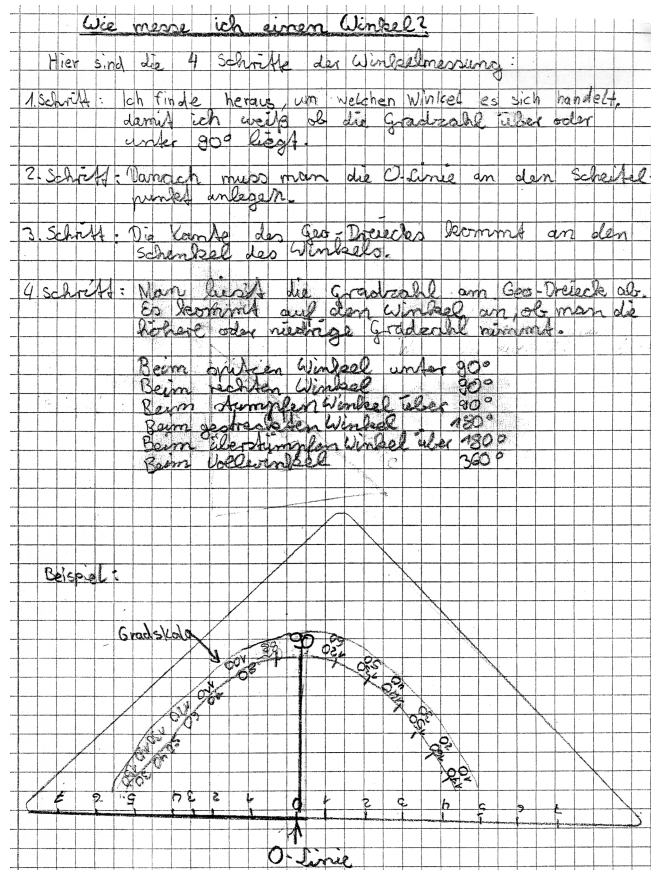 Wie messe ich einen Winkel?
Hier sind die 4 Schritte der Winkelmessung:
1. Schritt: Ich finde heraus, um welchen Winkel es sich handelt,
damit ich weiß ob die Gradzahl über oder
unter 90° liegt.
2. Schritt: Danach muss man die 0-Linie an den Scheitel-
punkt anlegen.
3. Schritt: Die Kante des Geo-Dreiecks kommt an den
Schenkel des Winkels.
4 Schritt: Man liest die Gradzahl am Geo-Dreieck ab.
Es kommt auf den Winkel an, ob man die
höhere oder niedrige Gradzahl nimmt.
Beim spitzen Winkel unter 90°
Beim rechten Winkel 90°
Beim stumpfen Winkel über 90°
Beim gestreckten Winkel 180°
Beim überstumpfen Winkel über 180°
Beim Vollwinkel 360°
Beispiel:
Gradskala
100 90
80
7 6 5 3 2 1 0 1 2 3 4 5 6 7
0-Linie